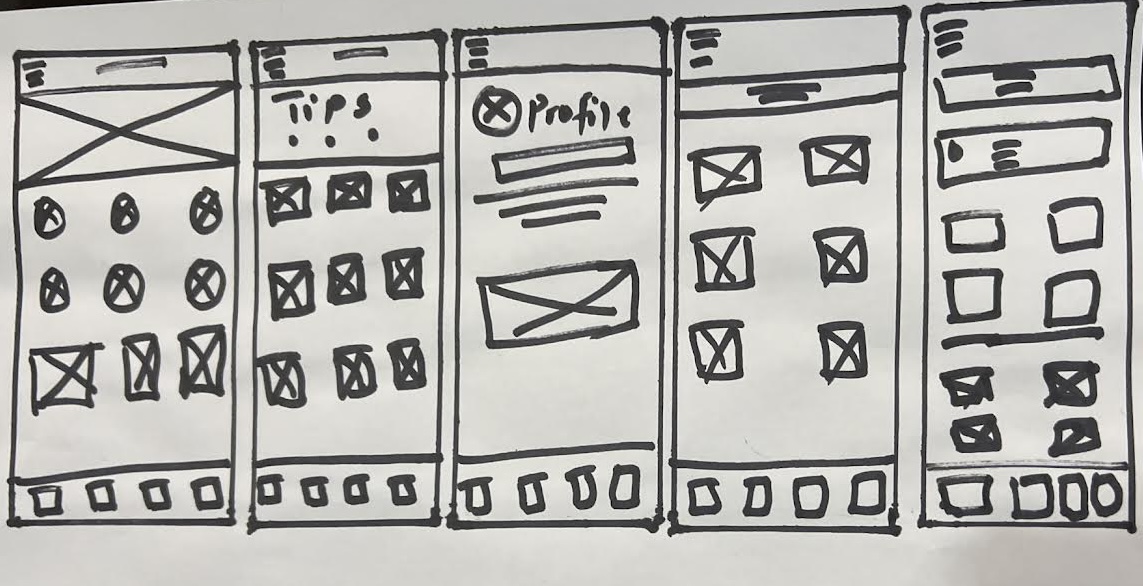 Tips
Profile